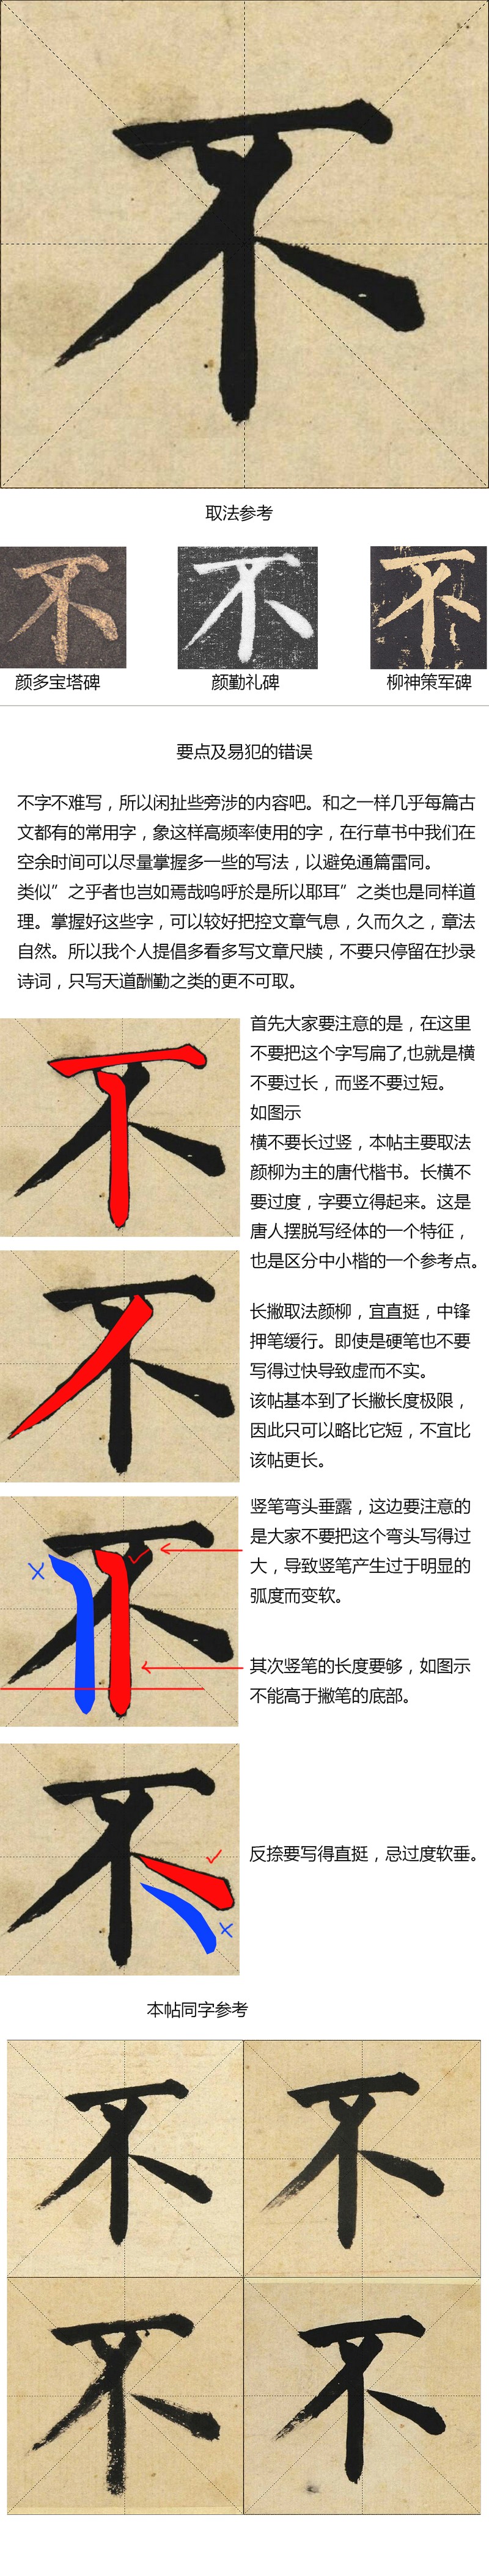 不
取法参考
不 不 不
颜多宝塔碑 颜勤礼碑 柳神策军碑
要点及易犯的错误
不字不难写，所以闲扯些旁涉的内容吧。和之一样几乎每篇古
文都有的常用字，象这样高频率使用的字，在行草书中我们在
空余时间可以尽量掌握多一些的写法，以避免通篇雷同。
类似”之乎者也岂如焉哉呜呼於是所以耶耳”之类也是同样道
理。掌握好这些字，可以较好把控文章气息，久而久之，章法
自然。所以我个人提倡多看多写文章尺牍，不要只停留在抄录
诗词，只写天道酬勤之类的更不可取。
不
首先大家要注意的是，在这里
不要把这个字写扁了,也就是横
不要过长，而竖不要过短。
如图示
横不要长过竖，本帖主要取法
颜柳为主的唐代楷书。长横不
要过度，字要立得起来。这是
唐人摆脱写经体的一个特征，
也是区分中小楷的一个参考点。
不
长撇取法颜柳，宜直挺，中锋
押笔缓行。即使是硬笔也不要
写得过快导致虚而不实。
该帖基本到了长撇长度极限，
因此只可以略比它短，不宜比
该帖更长。
不
竖笔弯头垂露，这边要注意的
是大家不要把这个弯头写得过
大，导致竖笔产生过于明显的
弧度而变软。
其次竖笔的长度要够，如图示
不能高于撇笔的底部。
不
反捺要写得直挺，忌过度软垂。
本帖同字参考
不 不
不 不